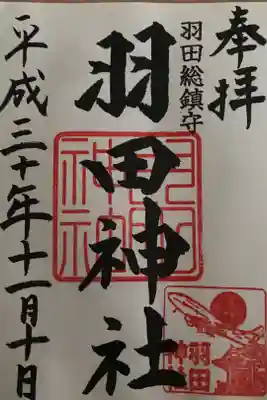 奉拝
羽田総鎮守
羽田神社
平成三十年十一月十日
羽田神社
羽田
神社